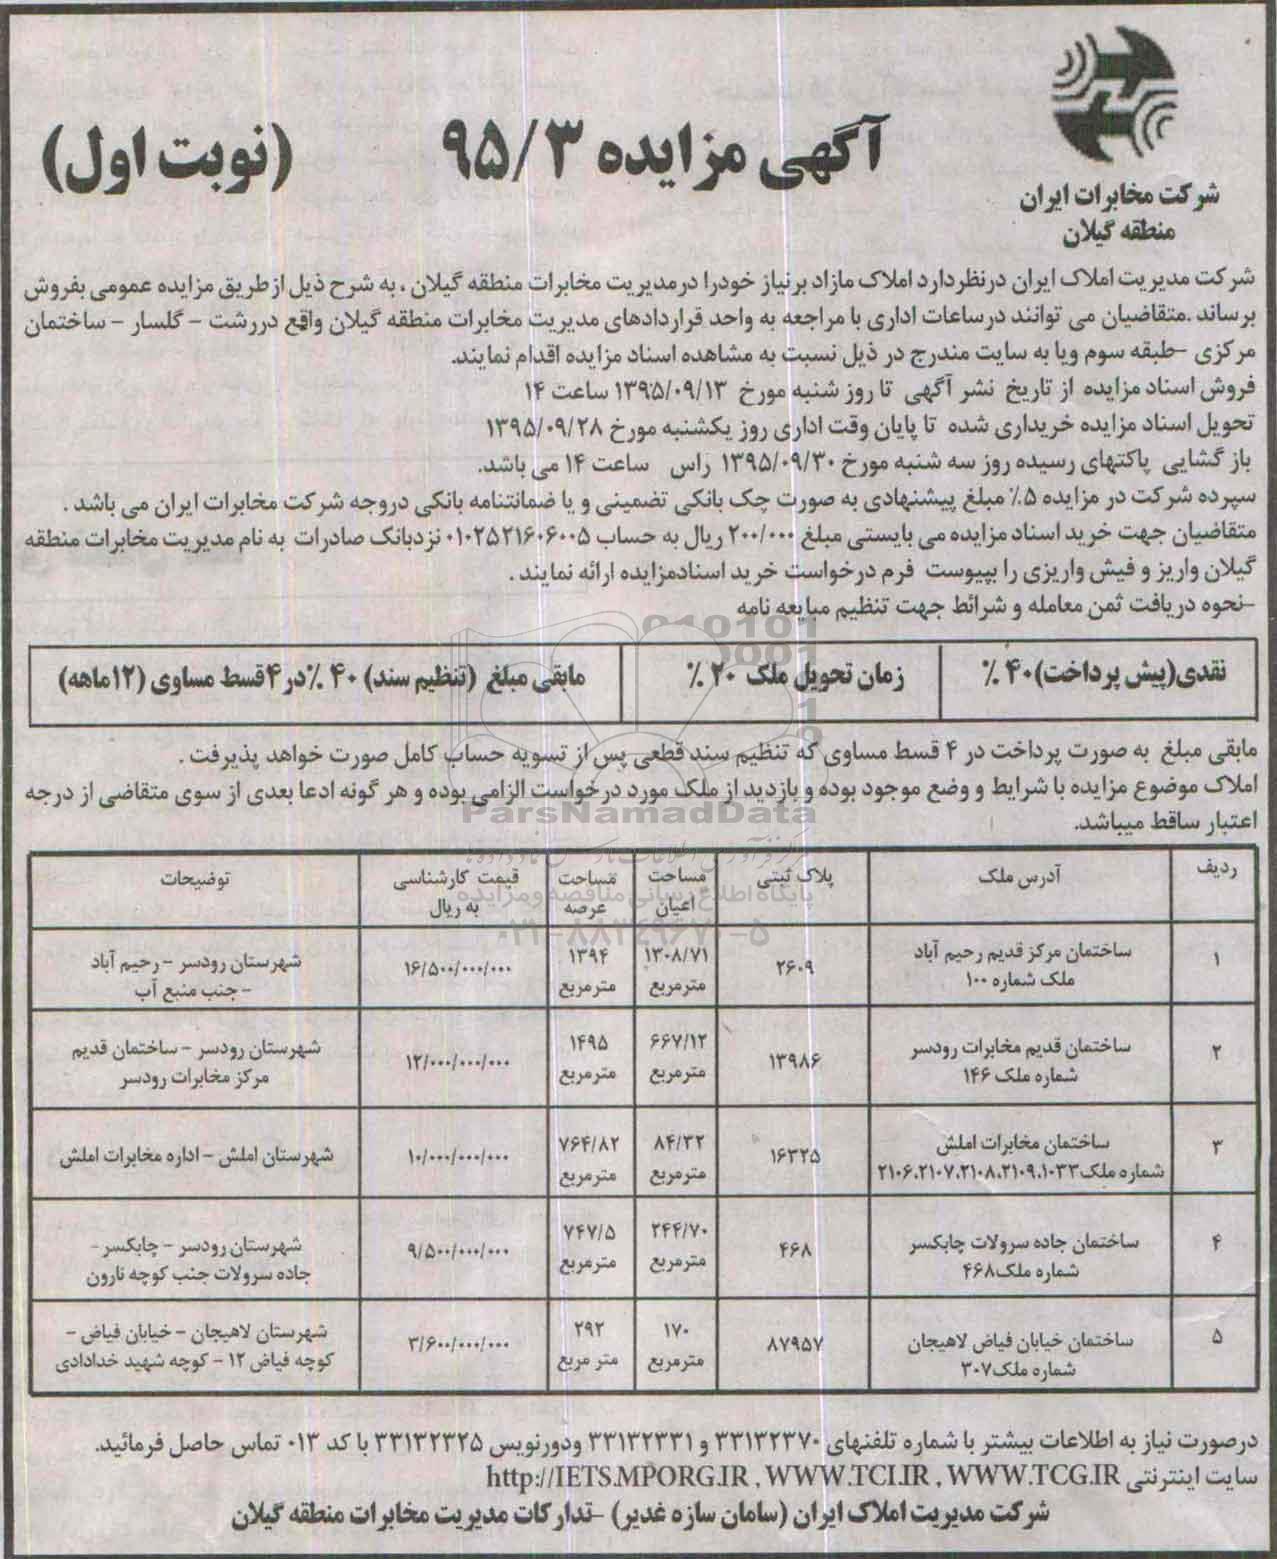 شرکت مخابرات ایران
منطقه گیلان
آگهی مزایده ۹۵/۳ (نوبت اول)
شرکت مدیریت املاک ایران درنظردارد املاک مازاد برنیاز خودرا درمدیریت مخابرات منطقه گیلان ، به شرح ذیل ازطریق مزایده عمومی بفروش
برساند .متقاضیان می توانند درساعات اداری با مراجعه به واحد قراردادهای مدیریت مخابرات منطقه گیلان واقع دررشت - گلسار - ساختمان
مرکزی -طبقه سوم ویا به سایت مندرج در ذیل نسبت به مشاهده اسناد مزایده اقدام نمایند.
فروش اسناد مزایده از تاریخ نشر آگهی تا روز شنبه مورخ ۱۳۹۵/۰۹/۱۳ ساعت ۱۴
تحویل اسناد مزایده خریداری شده تا پایان وقت اداری روز یکشنبه مورخ ۱۳۹۵/۰۹/۲۸
باز گشایی پاکتهای رسیده روز سه شنبه مورخ ۱۳۹۵/۰۹/۳۰ راس ساعت ۱۴ می باشد.
سپرده شرکت در مزایده ۵٪ مبلغ پیشنهادی به صورت چک بانکی تضمینی و یا ضمانتنامه بانکی دروجه شرکت مخابرات ایران می باشد .
متقاضیان جهت خرید اسناد مزایده می بایستی مبلغ ۲۰۰/۰۰۰ ریال به حساب ۰۱۰۲۵۲۱۶۰۶۰۰۵ نزدبانک صادرات به نام مدیریت مخابرات منطقه
گیلان واریز و فیش واریزی را بپیوست فرم درخواست خرید اسنادمزایده ارائه نمایند .
-نحوه دریافت ثمن معامله و شرائط جهت تنظیم مبایعه نامه
نقدی(پیش پرداخت)۴۰ ٪ زمان تحویل ملک ۲۰ ٪ مابقی مبلغ (تنظیم سند) ۴۰ ٪در ۴قسط مساوی (۱۲ماهه)
مابقی مبلغ به صورت پرداخت در ۴ قسط مساوی که تنظیم سند قطعی پس از تسویه حساب کامل صورت خواهد پذیرفت .
املاک موضوع مزایده با شرایط و وضع موجود بوده و بازدید از ملک مورد درخواست الزامی بوده و هر گونه ادعا بعدی از سوی متقاضی از درجه
اعتبار ساقط میباشد.
ParsNamadData
پایگاه اطلاع رسانی مناقصه و مزایده
۰۲۱-۸۸۳۴۹۶۷۰-۵
ردیف آدرس ملک پلاک ثبتی مساحت اعیان مساحت عرصه قیمت کارشناسی به ریال توضیحات
۱ ساختمان مرکز قدیم رحیم آباد ملک شماره ۱۰۰ ۲۶۰۹ ۱۳۰۸/۷۱ مترمربع ۱۳۹۴ مترمربع ۱۶/۵۰۰/۰۰۰/۰۰۰ شهرستان رودسر - رحیم آباد - جنب منبع آب
۲ ساختمان قدیم مخابرات رودسر شماره ملک ۱۴۶ ۱۳۹۸۶ ۶۶۷/۱۲ مترمربع ۱۴۹۵ مترمربع ۱۲/۰۰۰/۰۰۰/۰۰۰ شهرستان رودسر - ساختمان قدیم مرکز مخابرات رودسر
۳ ساختمان مخابرات املش شماره ملک۲۱۰۶،۲۱۰۷،۲۱۰۸،۲۱۰۹،۱۰۳۳ ۱۶۳۲۵ ۸۴/۳۲ مترمربع ۷۶۴/۸۲ مترمربع ۱۰/۰۰۰/۰۰۰/۰۰۰ شهرستان املش - اداره مخابرات املش
۴ ساختمان جاده سرولات چابکسر شماره ملک۴۶۸ ۴۶۸ ۲۴۴/۷۰ مترمربع ۷۴۷/۵ مترمربع ۹/۵۰۰/۰۰۰/۰۰۰ شهرستان رودسر - چابکسر- جاده سرولات جنب کوچه نارون
۵ ساختمان خیابان فیاض لاهیجان شماره ملک۳۰۷ ۸۷۹۵۷ ۱۷۰ مترمربع ۲۹۲ متر مربع ۳/۶۰۰/۰۰۰/۰۰۰ شهرستان لاهیجان - خیابان فیاض - کوچه فیاض ۱۲ - کوچه شهید خدادادی
درصورت نیاز به اطلاعات بیشتر با شماره تلفنهای ۳۳۱۳۲۳۷۰ و ۳۳۱۳۲۳۳۱ ودورنویس ۳۳۱۳۲۳۲۵ با کد ۰۱۳ تماس حاصل فرمائید.
سایت اینترنتی http://IETS.MPORG.IR , WWW.TCI.IR , WWW.TCG.IR
شرکت مدیریت املاک ایران (سامان سازه غدیر) -تدارکات مدیریت مخابرات منطقه گیلان